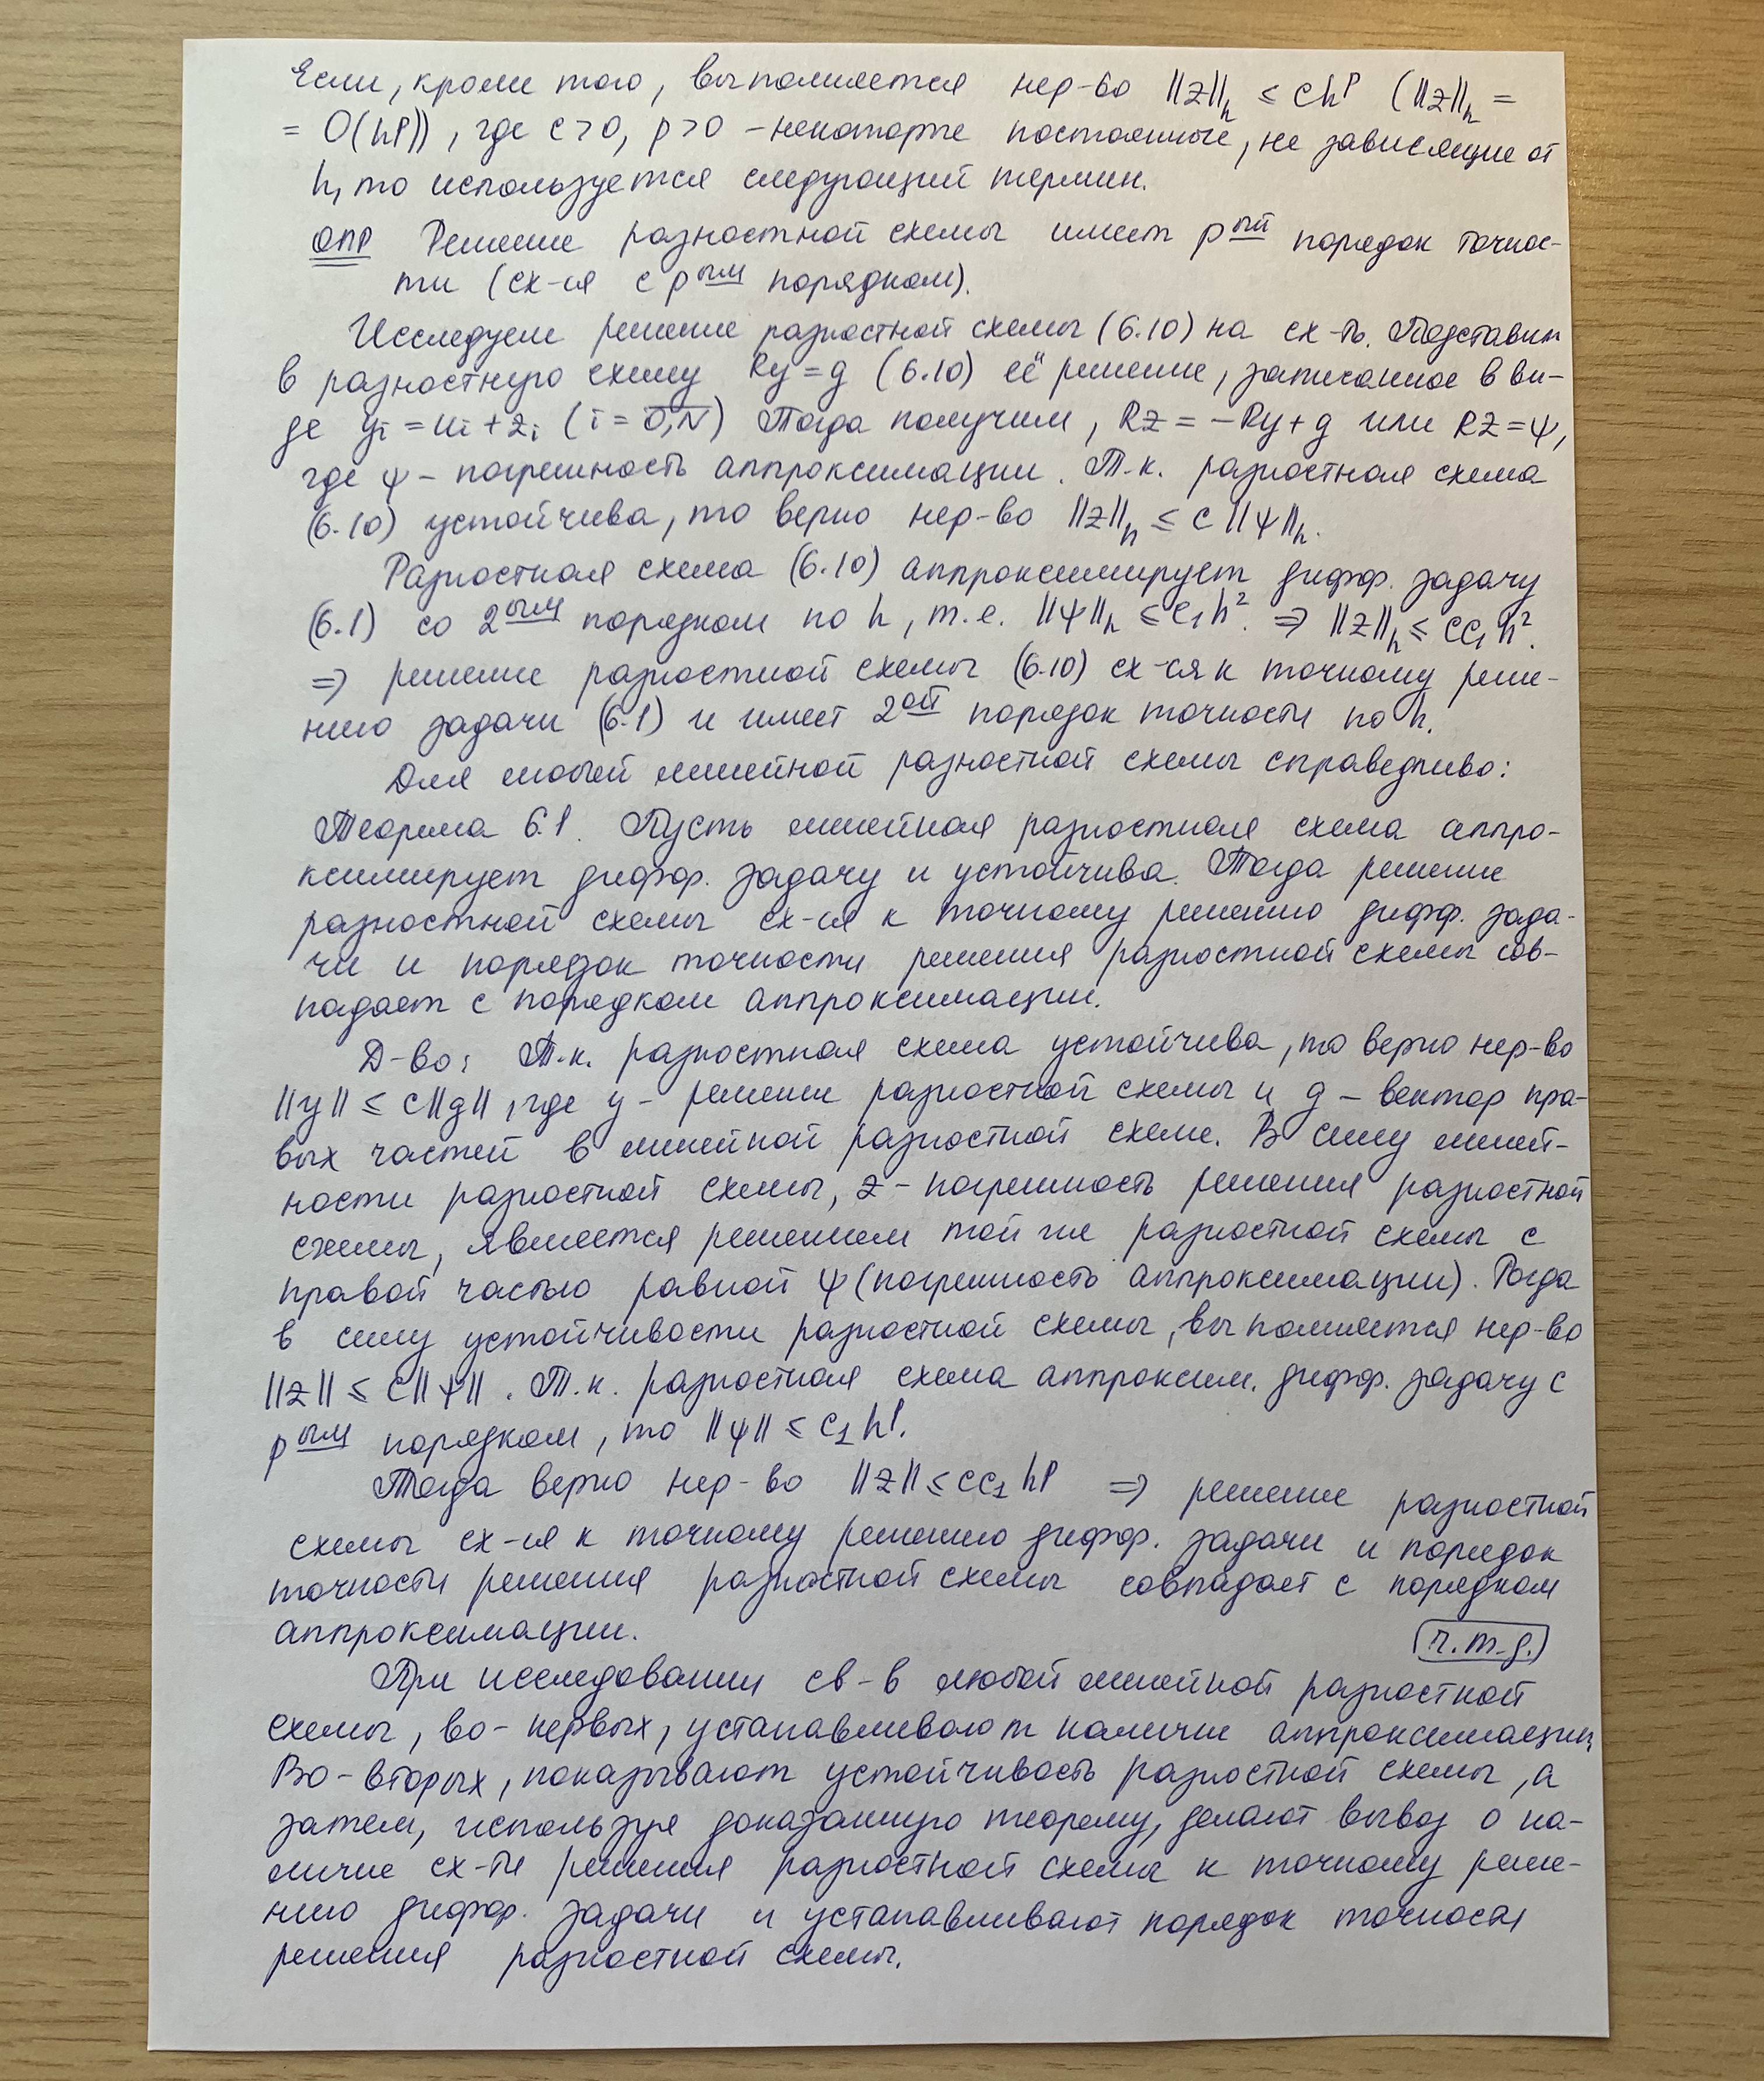 Если, кроме того, выполняется нер-во ||z||ₕ ≤ chᵖ (||z||ₕ =
= O(hᵖ)), где c>0, p>0 – некоторые постоянные, не зависящие от
h, то используется следующий термин.
ОПР Решение разностной схемы имеет pый порядок точнос-
ти (сх-ся с pым порядком).
Исследуем решение разностной схемы (6.10) на сх-ть. Подставим
в разностную схему Ry=g (6.10) её решение, записанное в ви-
де yᵢ = uᵢ + zᵢ (i = 0,N) Тогда получим, Rz = -Ry+g или Rz=ψ,
где ψ – погрешность аппроксимации. Т.к. разностная схема
(6.10) устойчива, то верно нер-во ||z||ₕ ≤ c||ψ||ₕ.
Разностная схема (6.10) аппроксимирует дифф. задачу
(6.1) со 2ым порядком по h, т.е. ||ψ||ₕ ≤ c₁h². ⇒ ||z||ₕ ≤ cc₁h².
⇒ решение разностной схемы (6.10) сх-ся к точному реше-
нию задачи (6.1) и имеет 2ой порядок точности по h.
Для любой линейной разностной схемы справедливо:
Теорема 6.1. Пусть линейная разностная схема аппро-
ксимирует дифф. задачу и устойчива. Тогда решение
разностной схемы сх-ся к точному решению дифф. зада-
чи и порядок точности решения разностной схемы сов-
падает с порядком аппроксимации.
Д-во: Т.к. разностная схема устойчива, то верно нер-во
||y|| ≤ c||g||, где y – решение разностной схемы и g – вектор пра-
вых частей в линейной разностной схеме. В силу линей-
ности разностной схемы, z – погрешность решения разностной
схемы, является решением той же разностной схемы с
правой частью равной ψ (погрешность аппроксимации). Тогда
в силу устойчивости разностной схемы, выполняется нер-во
||z|| ≤ c||ψ||. Т.к. разностная схема аппроксим. дифф. задачу с
pым порядком, то ||ψ|| ≤ c₁hᵖ.
Тогда верно нер-во ||z|| ≤ cc₁hᵖ ⇒ решение разностной
схемы сх-ся к точному решению дифф. задачи и порядок
точности решения разностной схемы совпадает с порядком
аппроксимации.
ч.т.д.
При исследовании св-в любой линейной разностной
схемы, во-первых, устанавливают наличие аппроксимации,
Во-вторых, показывают устойчивость разностной схемы, а
затем, используя доказанную теорему, делают вывод о на-
личие сх-ти решения разностной схемы к точному реше-
нию дифф. задачи и устанавливают порядок точности
решения разностной схемы.